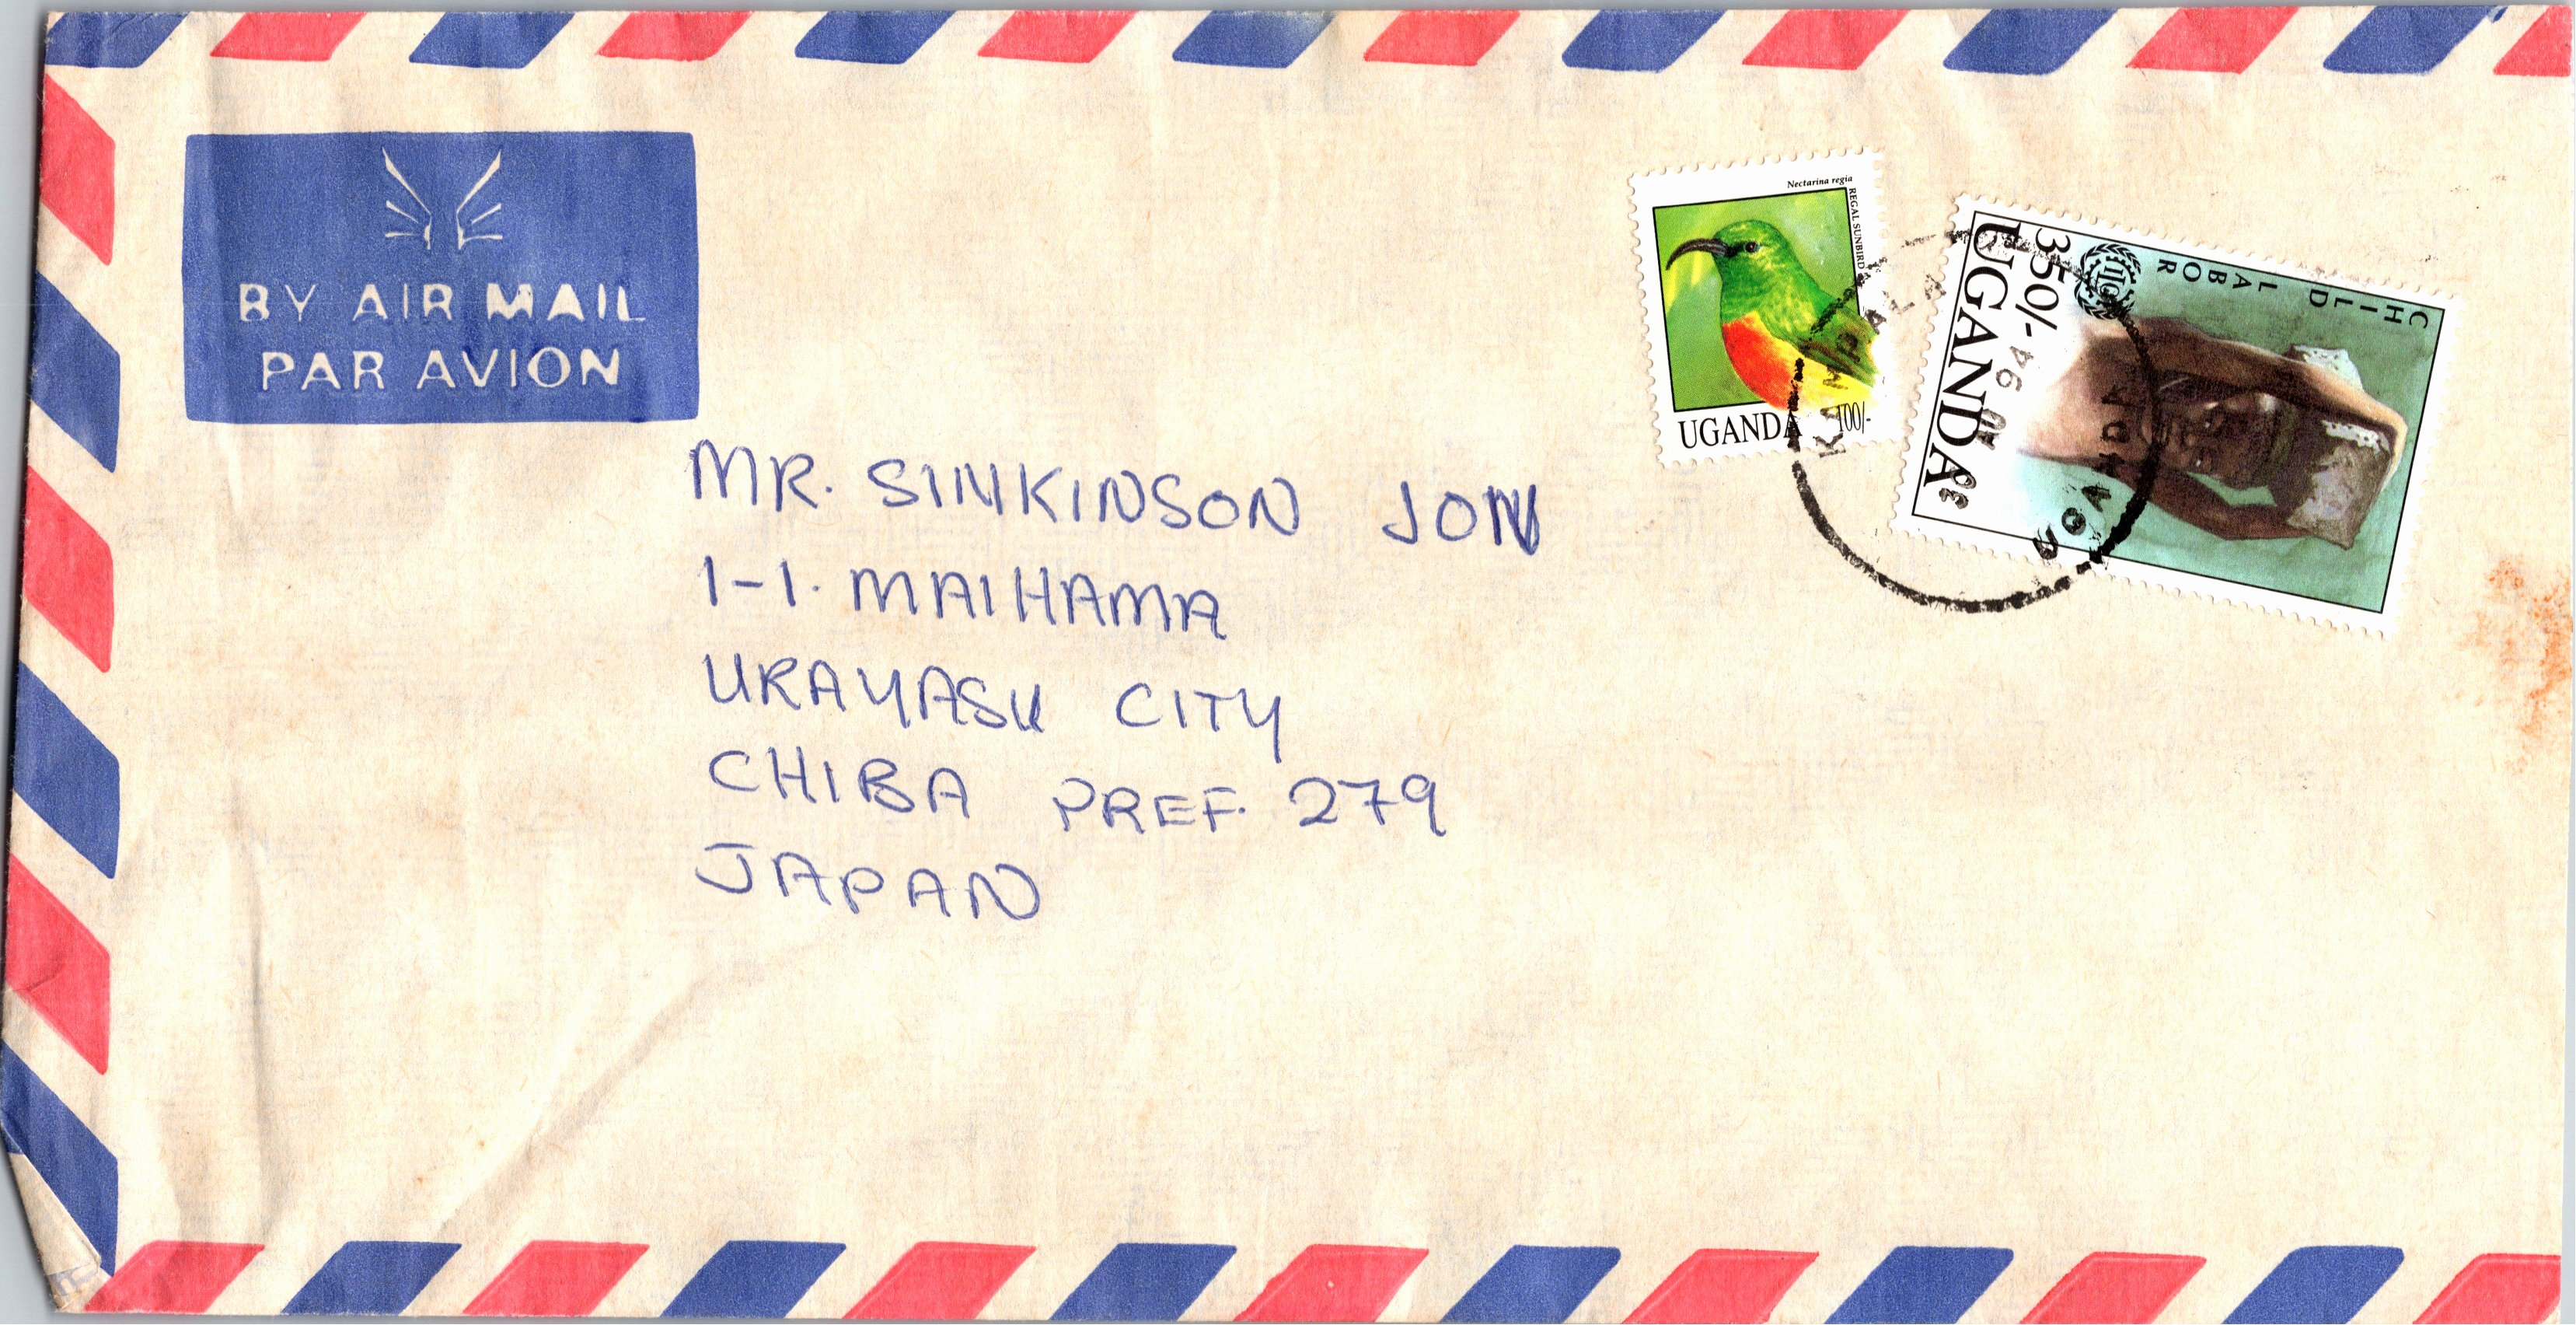 BY AIR MAIL
PAR AVION
Nectarina regia
REGAL SUNBIRD
UGANDA 100/-
CHILD
LABOR
350/-
UGANDA
KAMPALA
30
94
UGANDA
MR. SIMKINSON JON
1-1. MAIHAMA
URAYASU CITY
CHIBA PREF. 279
JAPAN